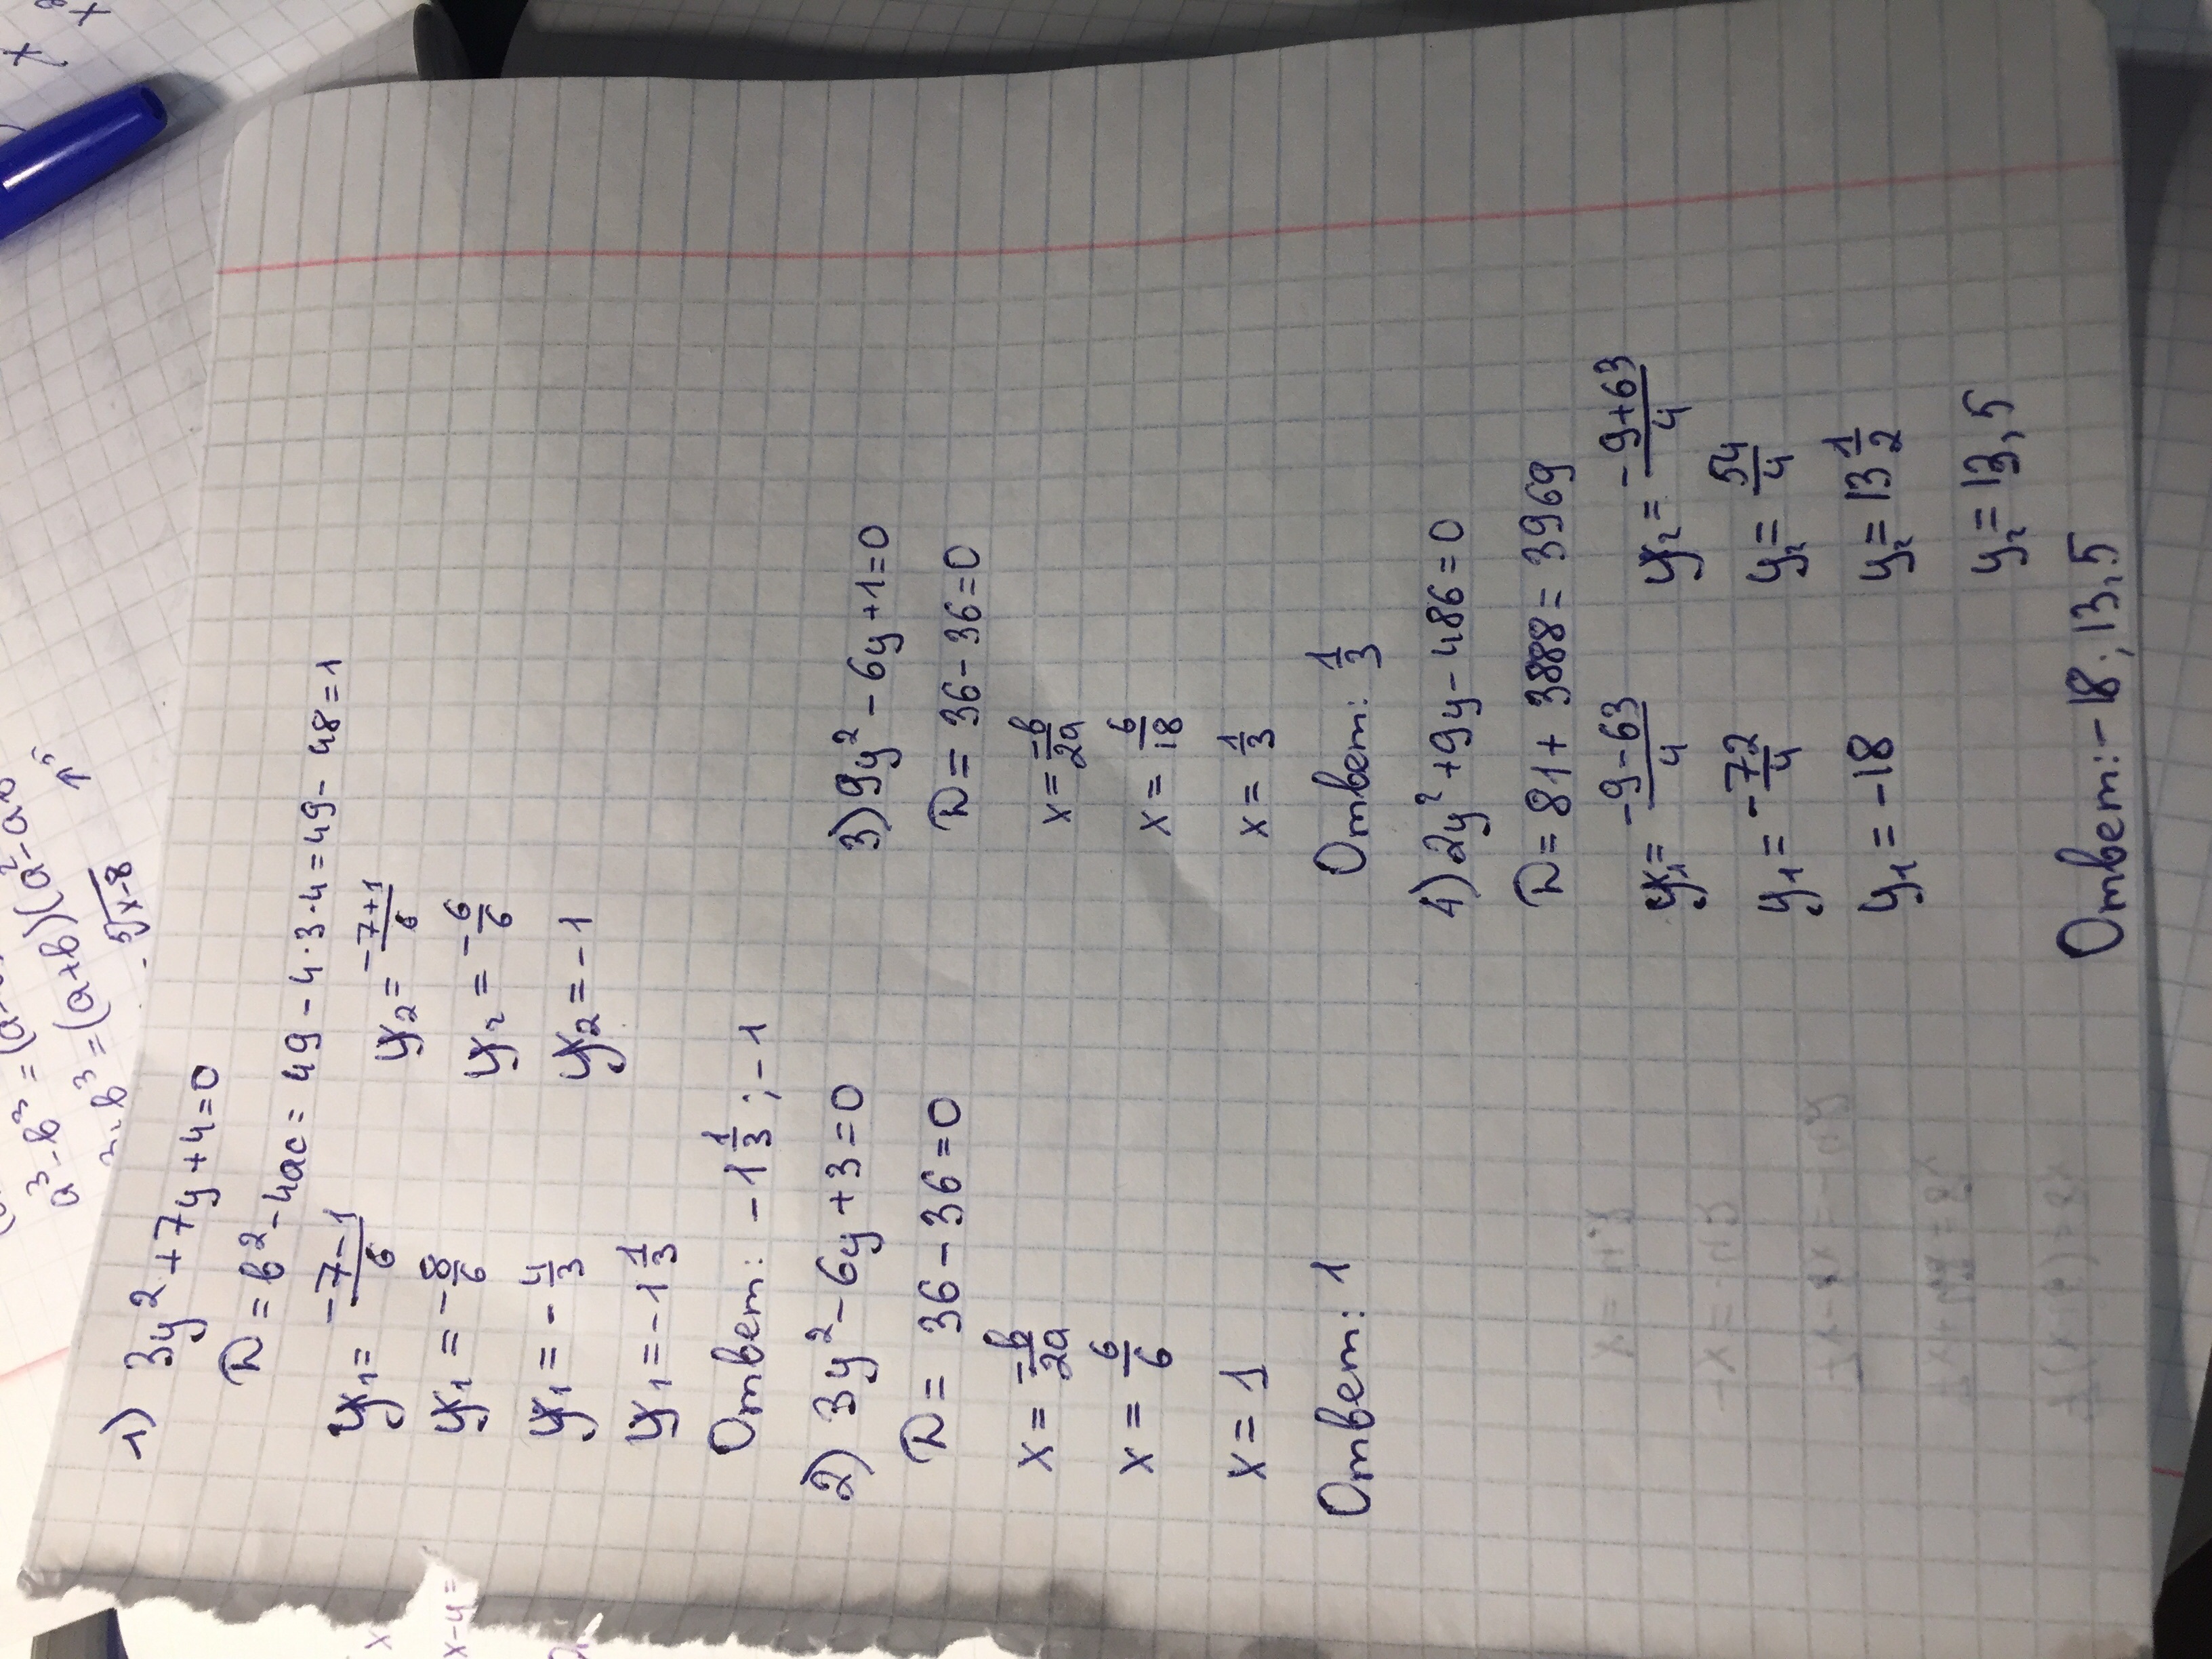 1) 3y² + 7y + 4 = 0
D = b² - 4ac = 49 - 4·3·4 = 49 - 48 = 1
y₁ = (-7-1)/6
y₂ = (-7+1)/6
y₁ = -8/6
y₂ = -6/6
y₁ = -4/3
y₂ = -1
y₁ = -1 1/3
Ответ: -1 1/3 ; -1
2) 3y² - 6y + 3 = 0
D = 36 - 36 = 0
x = -b/2a
x = 6/6
x = 1
Ответ: 1
3) 9y² - 6y + 1 = 0
D = 36 - 36 = 0
x = -b/2a
x = 6/18
x = 1/3
Ответ: 1/3
4) 2y² + 9y - 486 = 0
D = 81 + 3888 = 3969
y₁ = (-9-63)/4
y₂ = (-9+63)/4
y₁ = -72/4
y₂ = 54/4
y₁ = -18
y₂ = 13 1/2
y₂ = 13,5
Ответ: -18; 13,5